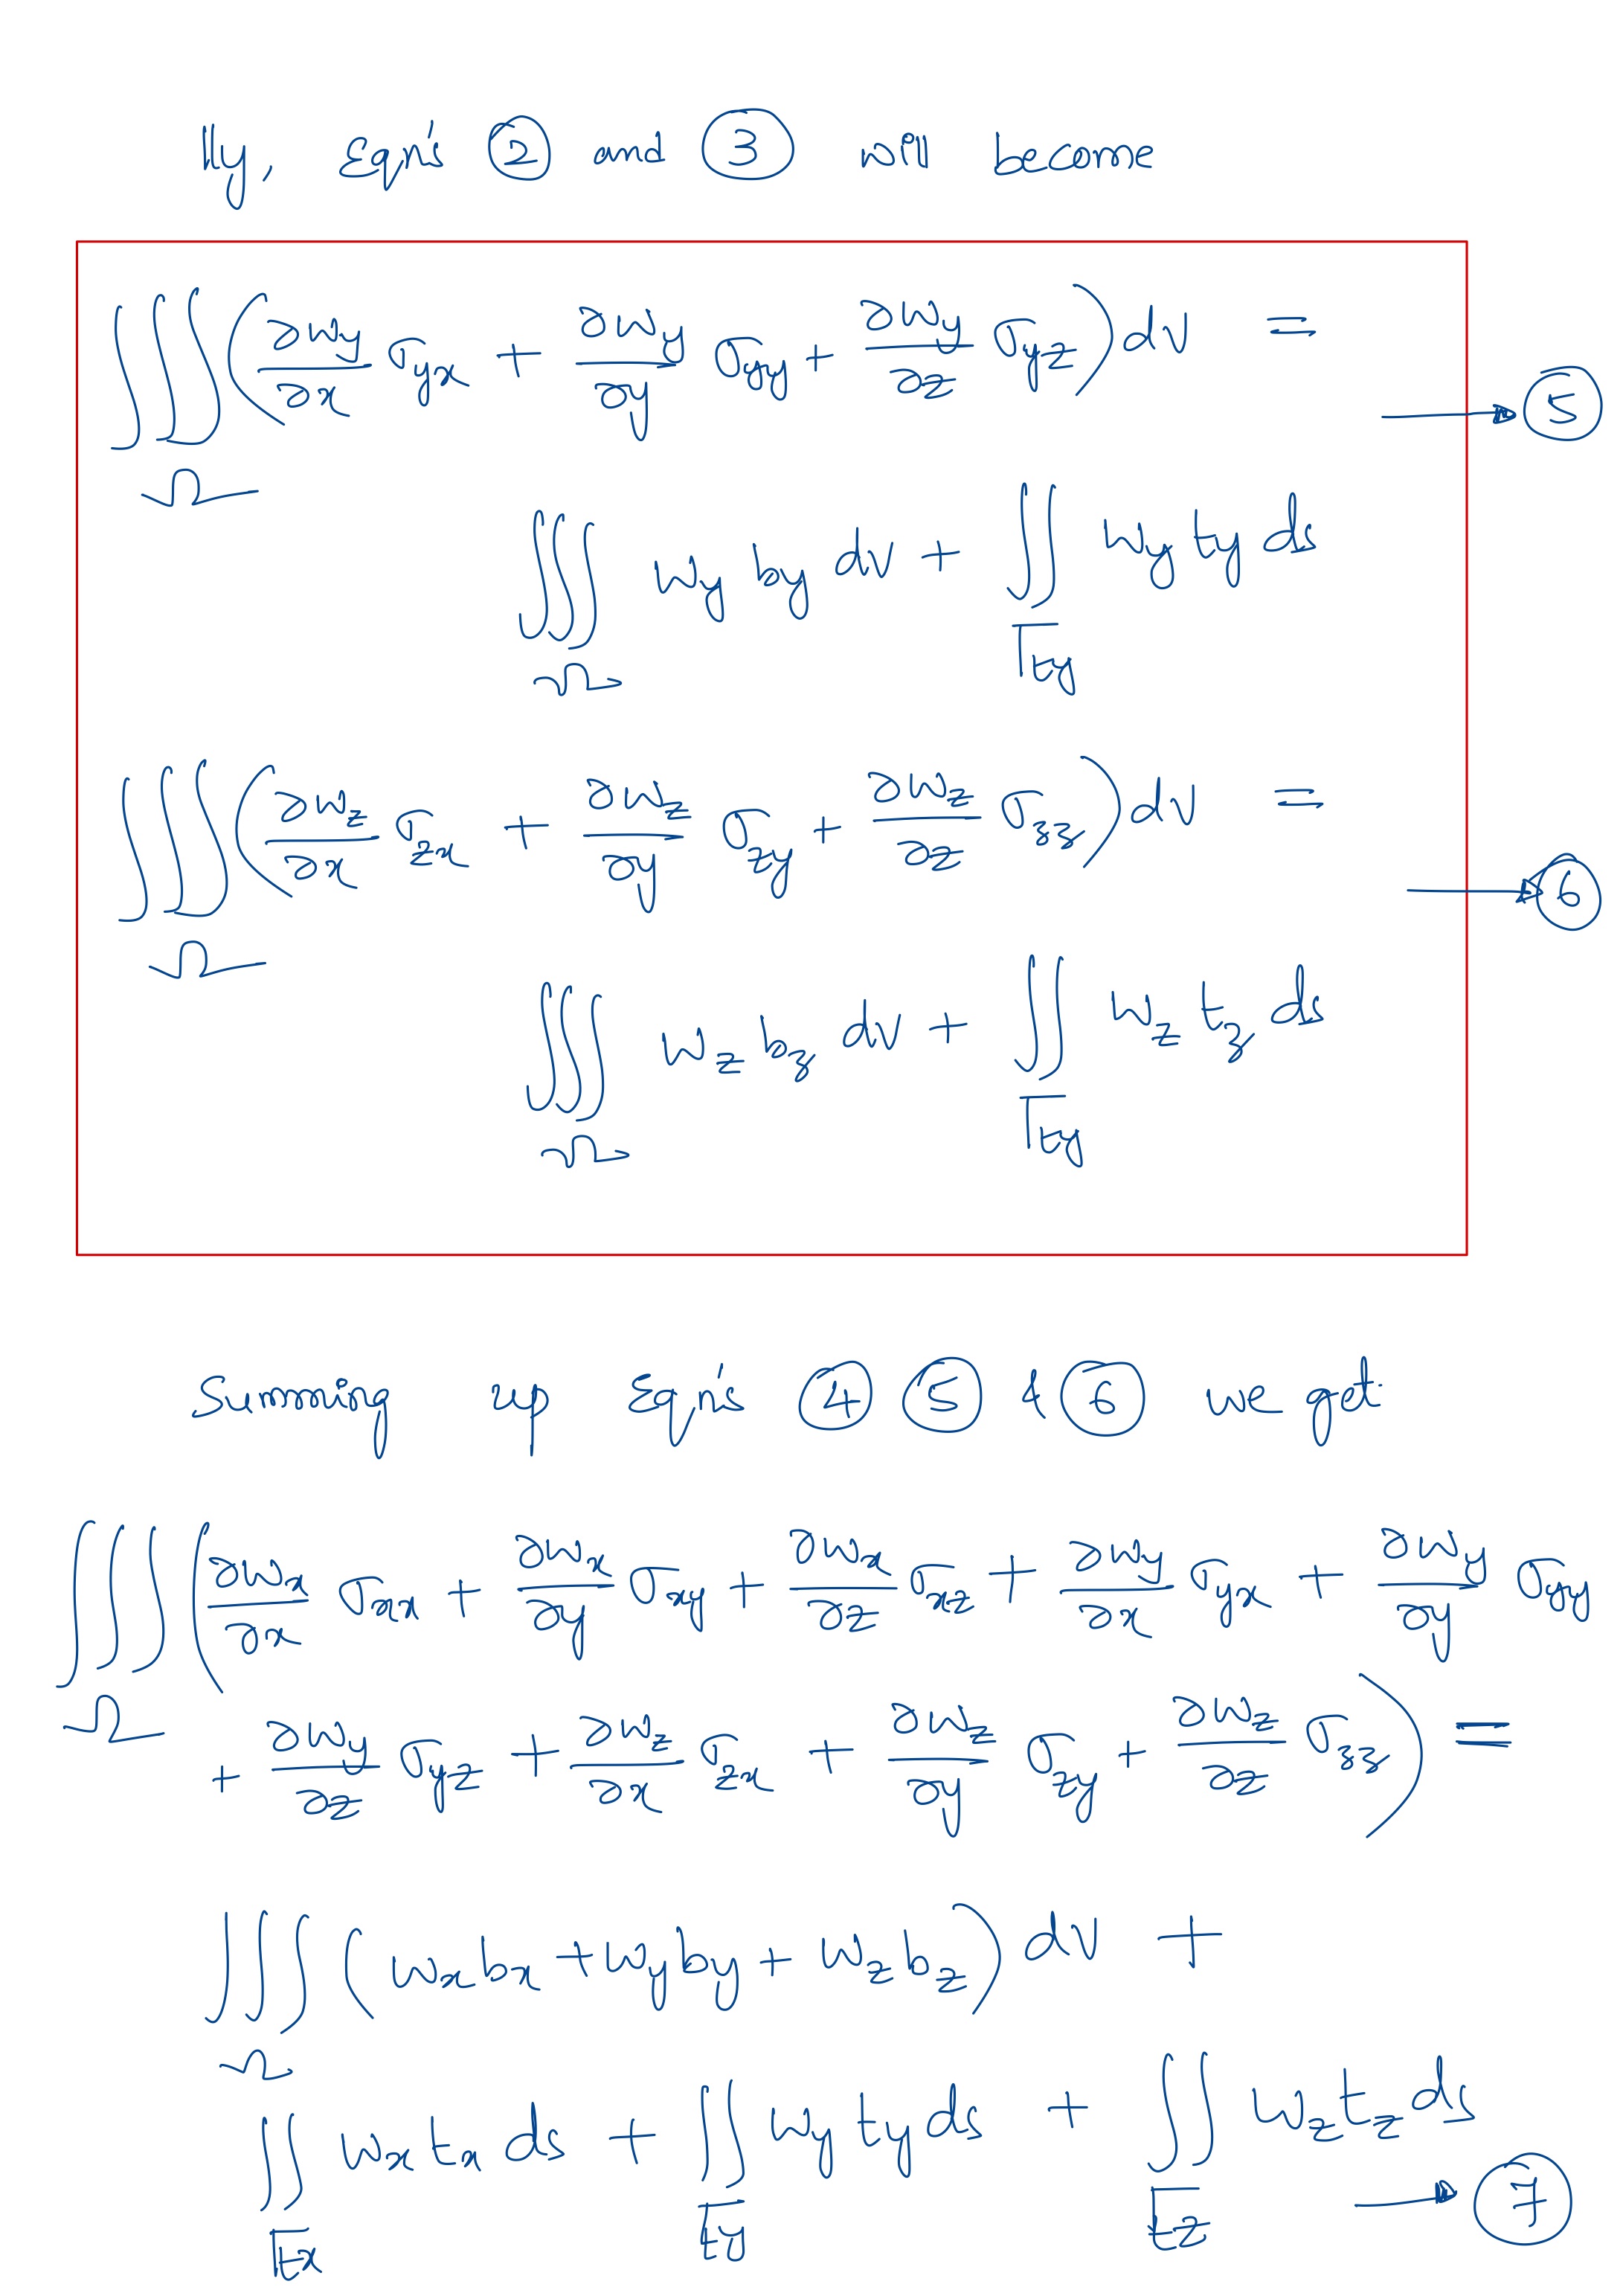 lly, Eqn's ② and ③ will become
∭_Ω (∂w_y/∂x σ_yx + ∂w_y/∂y σ_yy + ∂w_y/∂z σ_yz) dv =
→ ⑤
∭_Ω w_y b_y dv + ∬_Γty w_y t_y ds
∭_Ω (∂w_z/∂x σ_zx + ∂w_z/∂y σ_zy + ∂w_z/∂z σ_zz) dv =
→ ⑥
∭_Ω w_z b_z dv + ∬_Γty w_z t_z ds
Summing up Eqn's ④ ⑤ & ⑥ we get
∭_Ω (∂w_x/∂x σ_xx + ∂w_x/∂y σ_xy + ∂w_x/∂z σ_xz + ∂w_y/∂x σ_yx + ∂w_y/∂y σ_yy
+ ∂w_y/∂z σ_yz + ∂w_z/∂x σ_zx + ∂w_z/∂y σ_zy + ∂w_z/∂z σ_zz) =
∭_Ω (w_x b_x + w_y b_y + w_z b_z) dv +
∬_Γtx w_x t_x ds + ∬_Γty w_y t_y ds + ∬_Γtz w_z t_z ds
→ ⑦